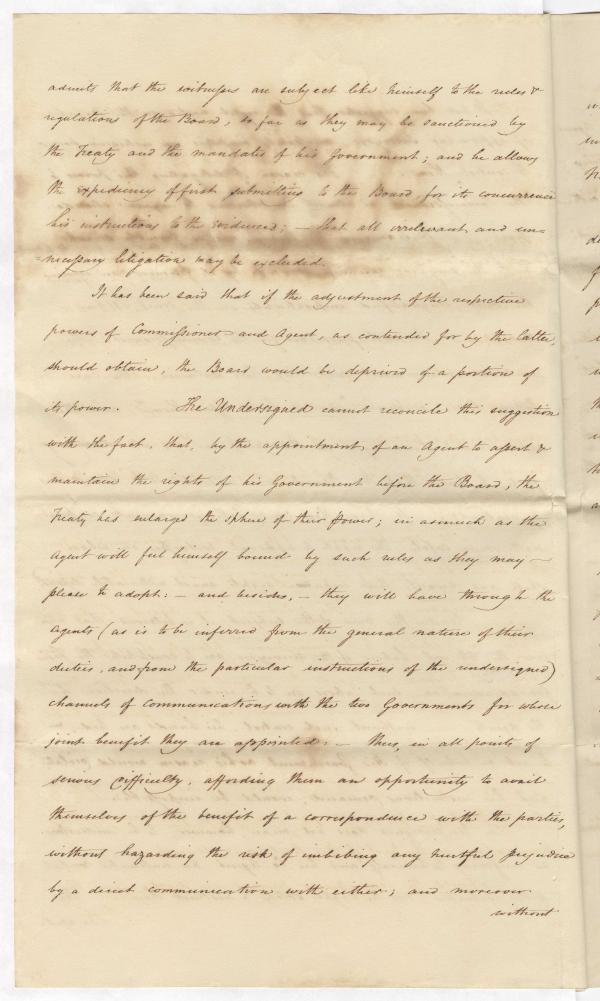 admits that the witnesses are subject like himself to the rules &
regulations of the Board, so far as they may be sanctioned by
the Treaty and the mandates of his Government; and he allows
the expediency of first submitting to the Board, for its concurrence
his instructions to the evidence; — that all irrelevant and un=
=necessary litigation may be excluded.
It has been said that if the adjustment of the respective
powers of Commissioner and Agent, as contended for by the latter,
should obtain, the Board would be deprived of a portion of
its power. The Undersigned cannot reconcile this suggestion
with the fact, that, by the appointment of an Agent to assert &
maintain the rights of his Government before the Board, the
Treaty has enlarged the sphere of their power; in asmuch as the
Agent will feel himself bound by such rules as they may —
please to adopt: — and besides, — they will have through the
Agents (as is to be inferred from the general nature of their
duties, and from the particular instructions of the undersigned)
channels of communications with the two Governments for whose
joint benefit they are appointed: — thus, in all points of
serious difficulty, affording them an opportunity to avail
themselves of the benefit of a correspondence with the parties,
without hazarding the risk of imbibing any hurtful prejudice
by a direct communication with either; and moreover
without